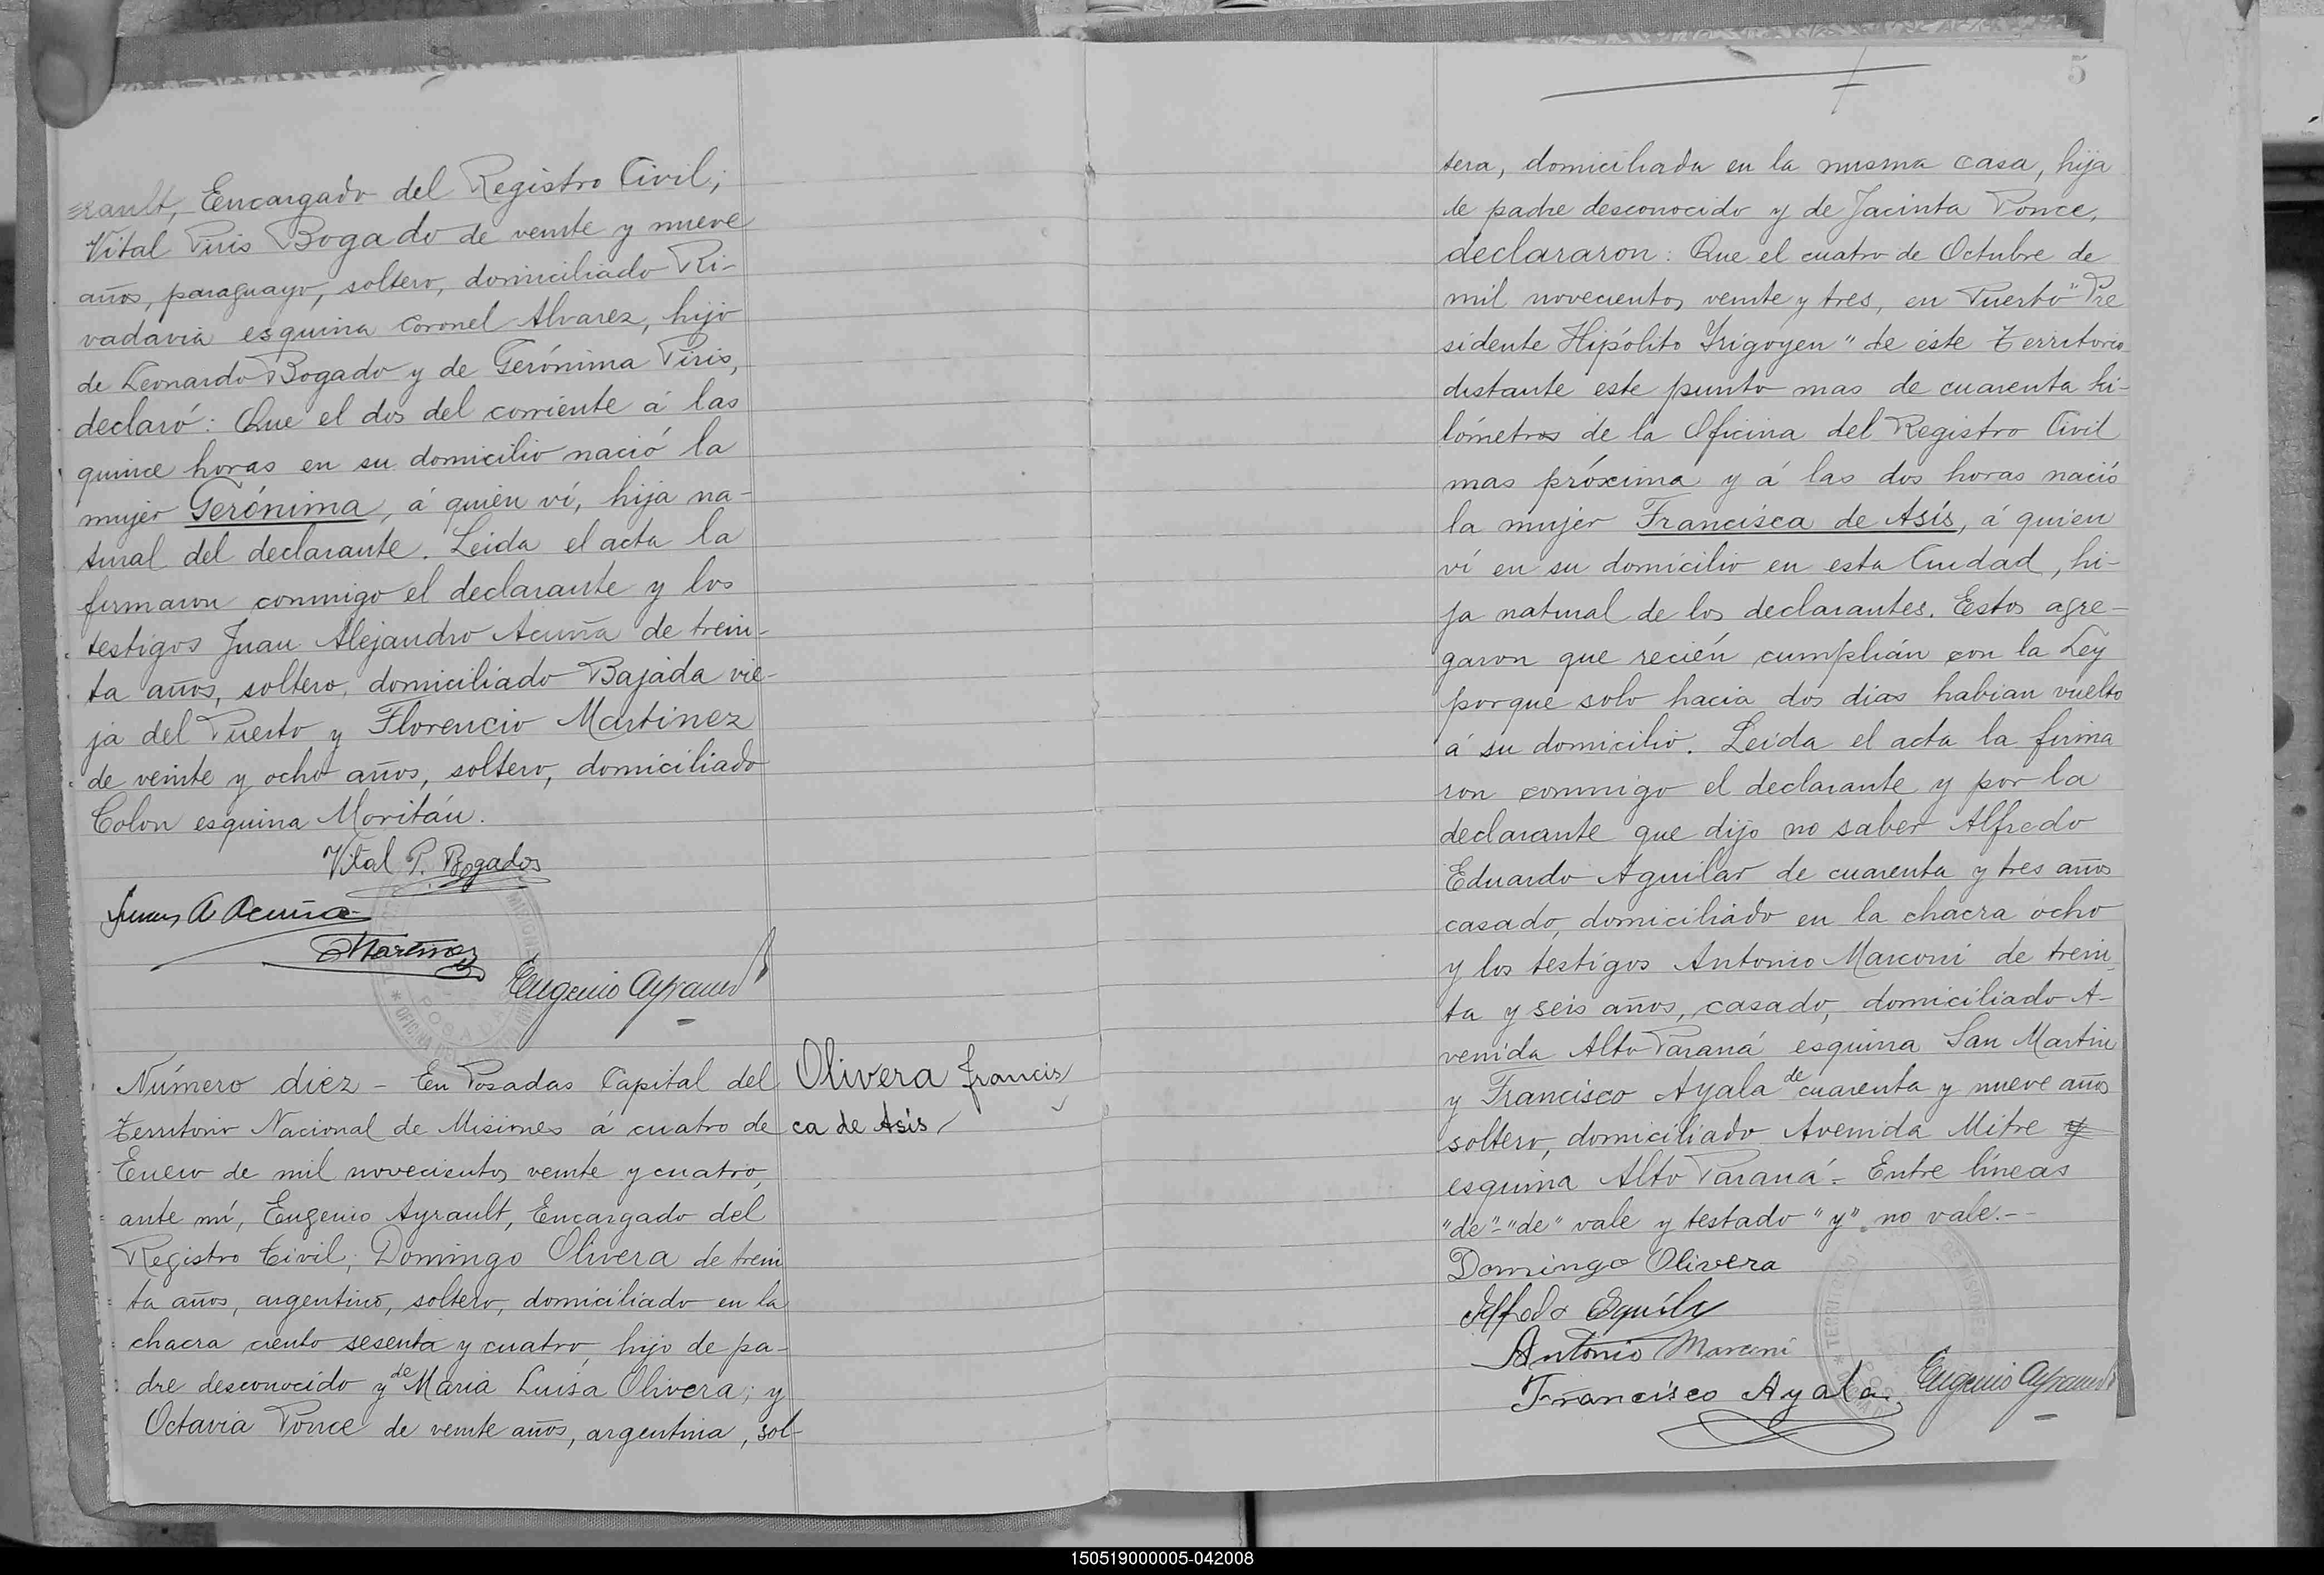 erault, Encargado del Registro Civil;
Vital Piris Bogado de veinte y nueve
años, paraguayo, soltero, domiciliado Ri-
vadavia esquina Coronel Alvarez, hijo
de Leonardo Bogado y de Gerónima Piris,
declaró: Que el dos del corriente á las
quince horas en su domicilio nació la
mujer Gerónima, á quien ví, hija na-
tural del declarante. Leida el acta la
firmaron conmigo el declarante y los
testigos Juan Alejandro Acuña de trein-
ta años, soltero, domiciliado Bajada vie-
ja del Puerto y Florencio Martinez
de veinte y ocho años, soltero, domiciliado
Colon esquina Moritán.
Vital P. Bogados
Juan A Acuña
Eugenio Ayrault
Número diez - En Posadas Capital del
Territorio Nacional de Misiones á cuatro de
Enero de mil novecientos veinte y cuatro,
ante mí, Eugenio Ayrault, Encargado del
Registro Civil; Domingo Olivera de trein
ta años, argentino, soltero, domiciliado en la
chacra ciento sesenta y cuatro, hijo de pa-
dre desconocido y de Maria Luisa Olivera; y
Octavia Ponce de veinte años, argentina, sol-
Olivera Francis
ca de Asís
5
tera, domiciliada en la misma casa, hija
de padre desconocido y de Jacinta Ponce,
declararon: Que el cuatro de Octubre de
mil novecientos veinte y tres, en Puerto "Pre
sidente Hipólito Yrigoyen" de este Territorio
distante este punto mas de cuarenta ki-
lómetros de la Oficina del Registro Civil
mas próxima y á las dos horas nació
la mujer Francisca de Asís, á quien
ví en su domicilio en esta Ciudad, hi-
ja natural de los declarantes. Estos agre-
garon que recién cumplián con la Ley
porque solo hacia dos dias habian vuelto
á su domicilio. Leida el acta la firma
ron conmigo el declarante y por la
declarante que dijo no saber Alfredo
Eduardo Aguilar de cuarenta y tres años
casado, domiciliado en la chacra ocho
y los testigos Antonio Marconi de trein
ta y seis años, casado, domiciliado A-
venida Alto Paraná esquina San Martin
y Francisco Ayala de cuarenta y nueve años
soltero, domiciliado Avenida Mitre y
esquina Alto Paraná - Entre líneas
"de" - "de" vale y testado "y" no vale.--
Domingo Olivera
Antonio Marconi
Francisco Ayala
Eugenio Ayrault
150519000005-042008